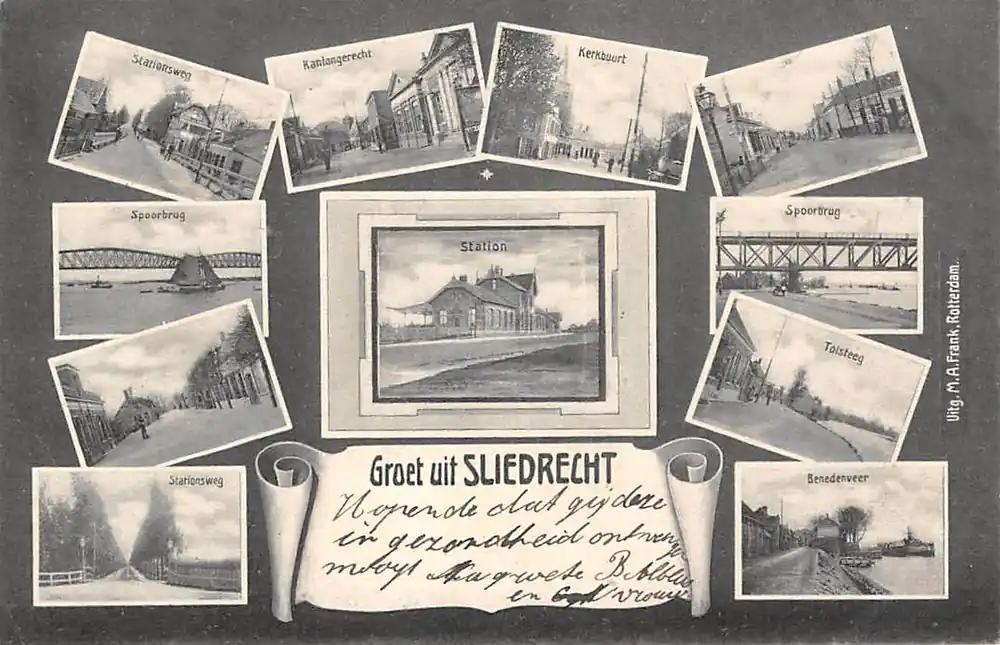 Stationsweg
Kanlangerecht
Kerkbuurt
Spoorbrug
Station
Spoorbrug
Tolsteeg
Stationsweg
Benedenveer
Uitg. M. A. Frank, Rotterdam.
Groet uit SLIEDRECHT
Hopende dat gij deze
in gezondheid ontvang
moogt Na groete
en vrouw